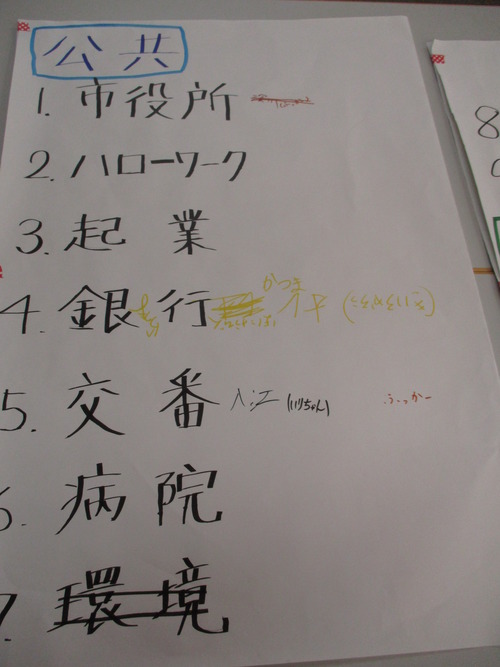 公共
1. 市役所
2. ハローワーク
3. 起業
4. 銀行 かつき
5. 交番 入江 (いりちゃん) ふっかー
6. 病院
7. 環境
8